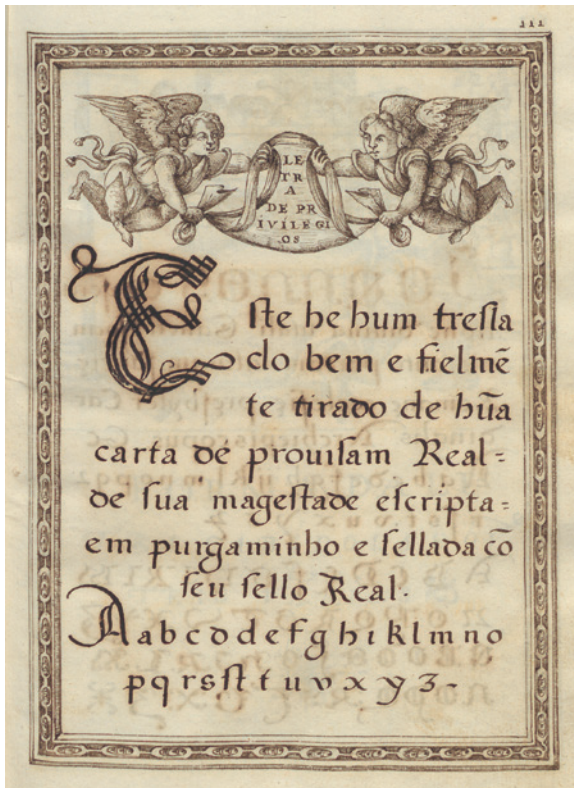 111
LE
TR
A
DE PR
IVILEGI
.OS
Eſte he hum treſla
do bem e fielmẽ
te tirado de hũa
carta de prouiſam Real-
de ſua mageſtade eſcripta-
em purgaminho e ſellada cõ
ſeu ſello Real.
Aabcddefghiklmno
pqrsſt t u v x y z -